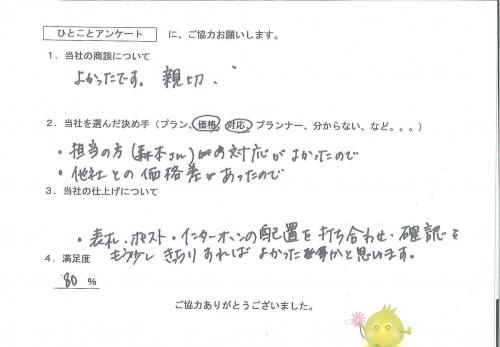 ひとことアンケート に、ご協力お願いします。
1．当社の商談について
よかったです。親切．
2．当社を選んだ決め手（プラン、価格、対応、プランナー、分からない、など。。。）
・担当の方（森本さん）の対応がよかったので
・他社との価格差があったので
3．当社の仕上げについて
・表札・ポスト・インターホンの配置を打ち合わせ・確認を
もう少しきっちりすればよかった事かと思います。
4．満足度
80 %
ご協力ありがとうございました。